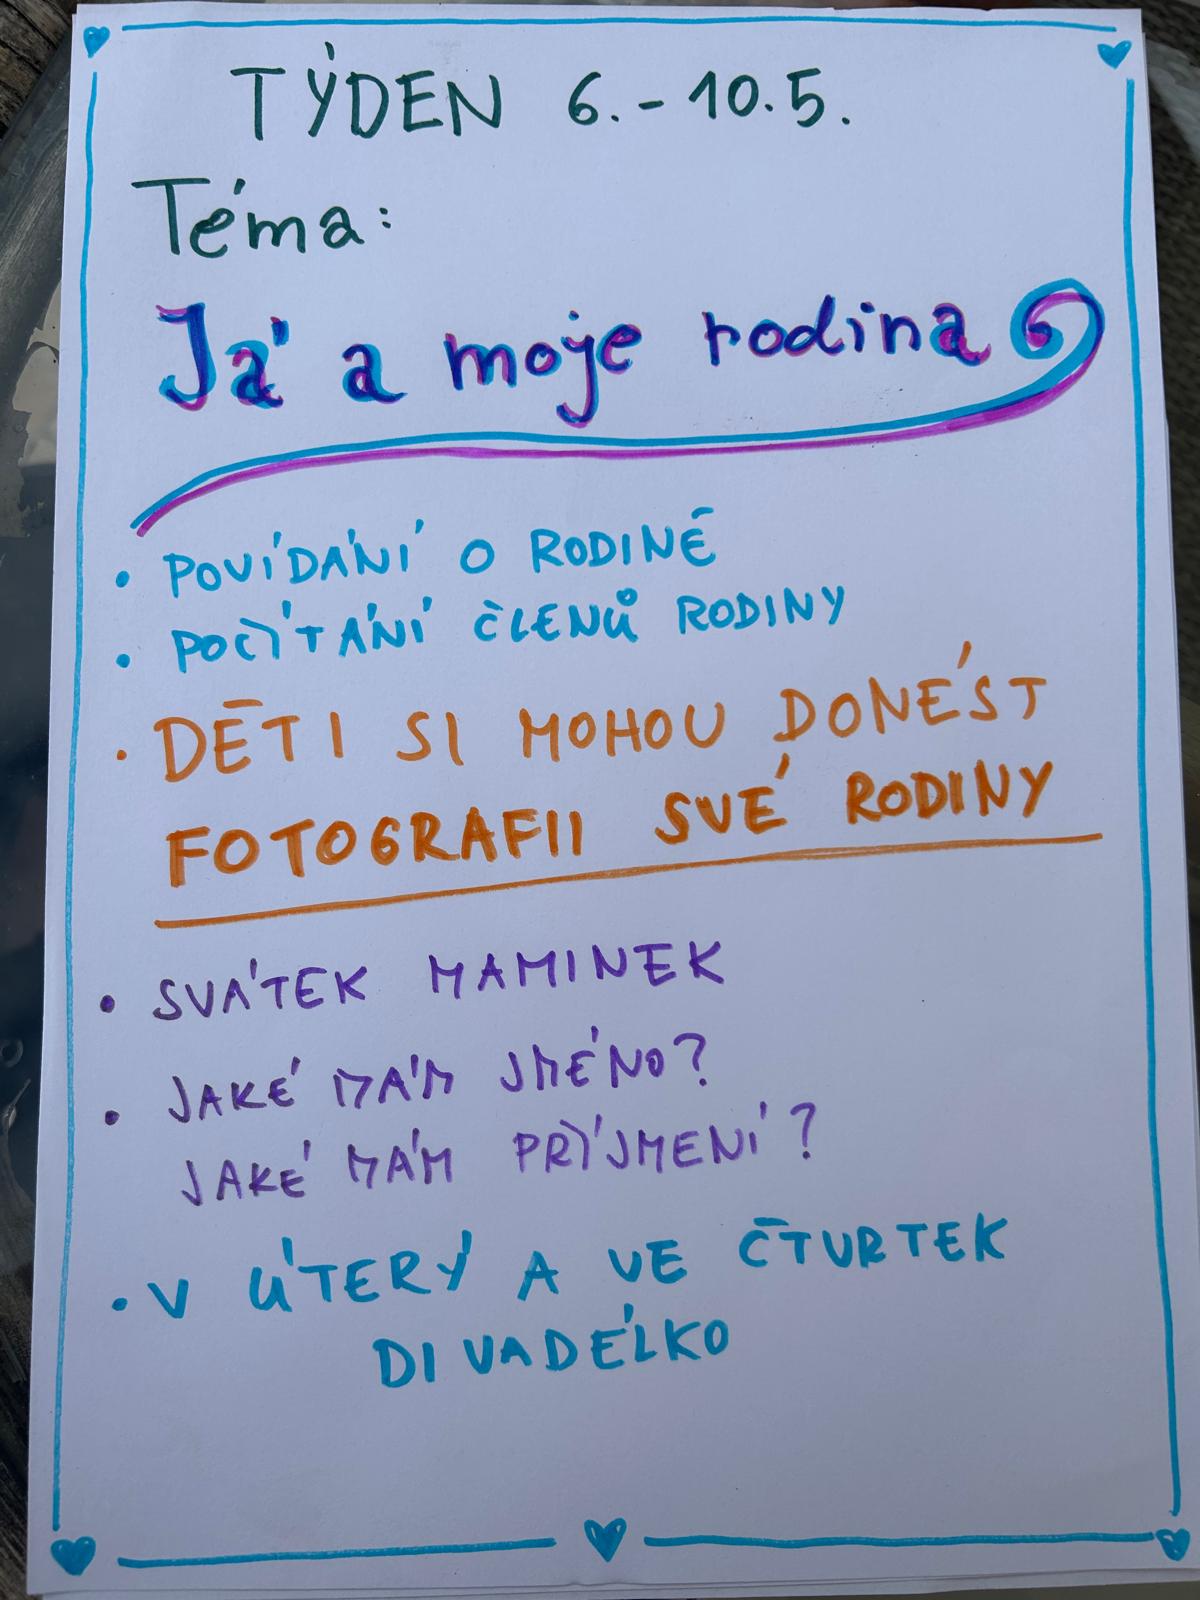 TÝDEN 6.-10.5.
Téma:
Já a moje rodina
• POVÍDÁNÍ O RODINĚ
• POČÍTÁNÍ ČLENŮ RODINY
• DĚTI SI MOHOU DONÉST
FOTOGRAFII SVÉ RODINY
• SVÁTEK MAMINEK
• JAKÉ MÁM JMÉNO?
JAKÉ MÁM PŘÍJMENÍ?
• V ÚTERÝ A VE ČTVRTEK
DIVADÉLKO